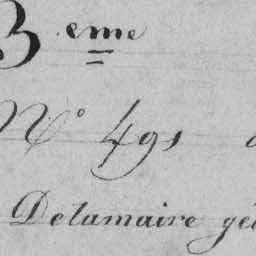 3.eme
N° 491
Delamaire